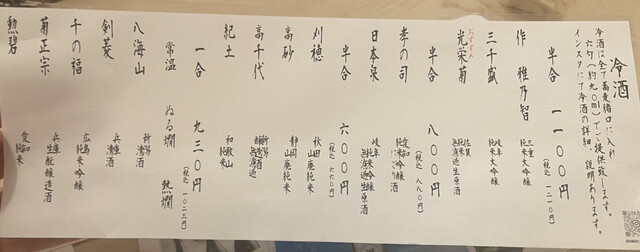 冷酒
冷酒は全て蕎麦猪口に入れ
六勺(約九〇ml)でご提供致します。
インスタにて冷酒の詳細、説明あります。
半合 一一〇〇円
(税込 一二一〇円)
作 雅乃智 三重 純米大吟醸
三千盛 岐阜 純米大吟醸
おすすめ
光栄菊 佐賀 無濾過生原酒
半合 八〇〇円
(税込 八八〇円)
孝の司 愛知 純米吟醸 にごり酒
日本泉 岐阜 純米吟醸 無濾過生原酒
半合 六〇〇円
(税込 六六〇円)
刈穂 秋田 山廃純米
高砂 静岡 山廃純米
高千代 新潟 無濾過
紀土 和歌山 純米
一合 九三〇円
(税込 一〇二三円)
常温 ぬる燗 熱燗
八海山 新潟 清酒
剣菱 兵庫 清酒
千の福 広島 純米
菊正宗 兵庫 生酛醸造酒
勲碧 愛知 純米